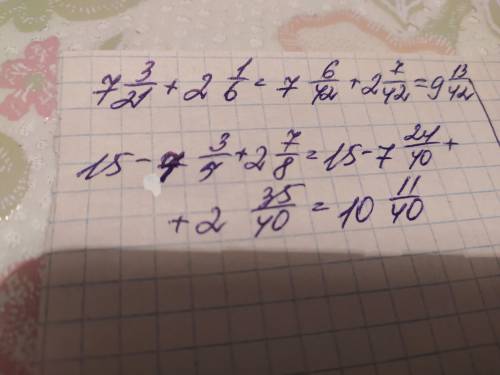 7 3/21 + 2 1/6 = 7 6/42 + 2 7/42 = 9 13/42
15 - 7 3/5 + 2 7/8 = 15 - 7 24/40 +
+ 2 35/40 = 10 11/40